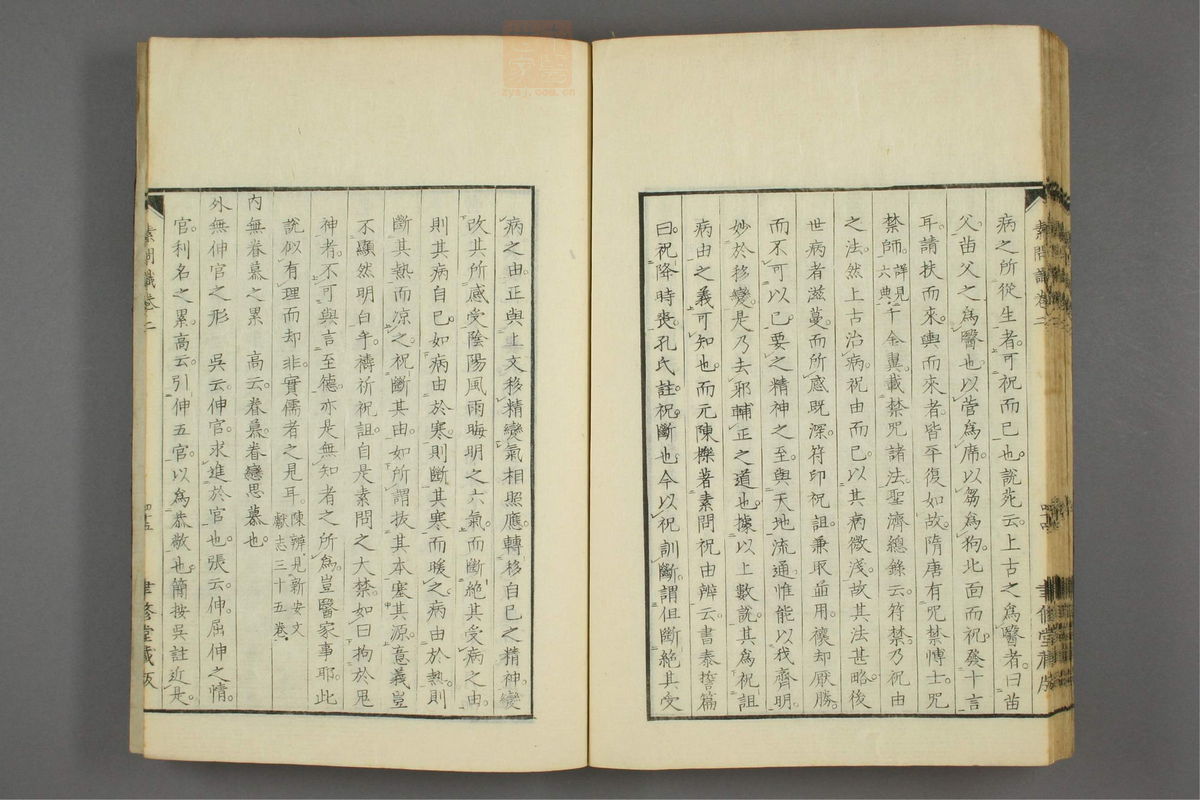 病之所從生者。可祝而已也。說苑云。上古之為醫者。曰苗
父。苗父之為醫也。以菅為席。以芻為狗。北面而祝。發十言
耳。請扶而來。輿而來者。皆平復如故。隋唐有呪禁博士。呪
禁師。詳見六典。千金翼載禁呪諸法。聖濟總錄云。符禁。乃祝由
之法。然上古治病。祝由而已。以其病微淺。故其法甚略。後
世病者滋蔓。而所感既深。符印祝詛。兼取並用。禳却厭勝。
而不可以已。要之精神之至。與天地流通。惟能以我齊明。
妙於移變。是乃去邪輔正之道也。據以上數說。其為祝詛
病由之義可知也。而元陳櫟著素問祝由辨云。書泰誓篇
曰。祝降時喪。孔氏註。祝斷也。今以祝訓斷。謂但斷絕其受
素問識卷二
聿修堂藏版
病之由。正與上文移精變氣相照應。轉移自己之精神。變
改其所感受陰陽風雨晦明之六氣。而斷絕其受病之由。
則其病自已。如病由於寒。則斷其寒而暖之。病由於熱。則
斷其熱而凉之。祝斷其由。如所謂拔其本。塞其源。意義豈
不顯然明白乎。禱祈祝詛。自是素問之大禁。如曰拘於鬼
神者。不可與言至德。亦是無知者之所為。豈醫家事耶。此
說似有理。而却非。實儒者之見耳。陳辨。見新安文獻志三十五卷。
內無眷慕之累 高云。眷慕。眷戀思慕也。
外無伸官之形 吳云。伸官。求進於官也。張云。伸。屈伸之情。
官。利名之累。高云。引伸五官。以為恭敬也。簡按吳註近是。
素問識卷二
四十五
聿修堂藏版
zysj.com.cn